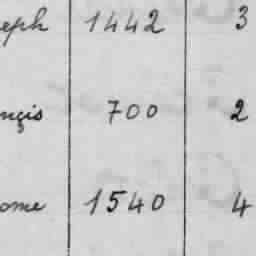 eph 1442 3
nçis 700 2
ome 1540 4